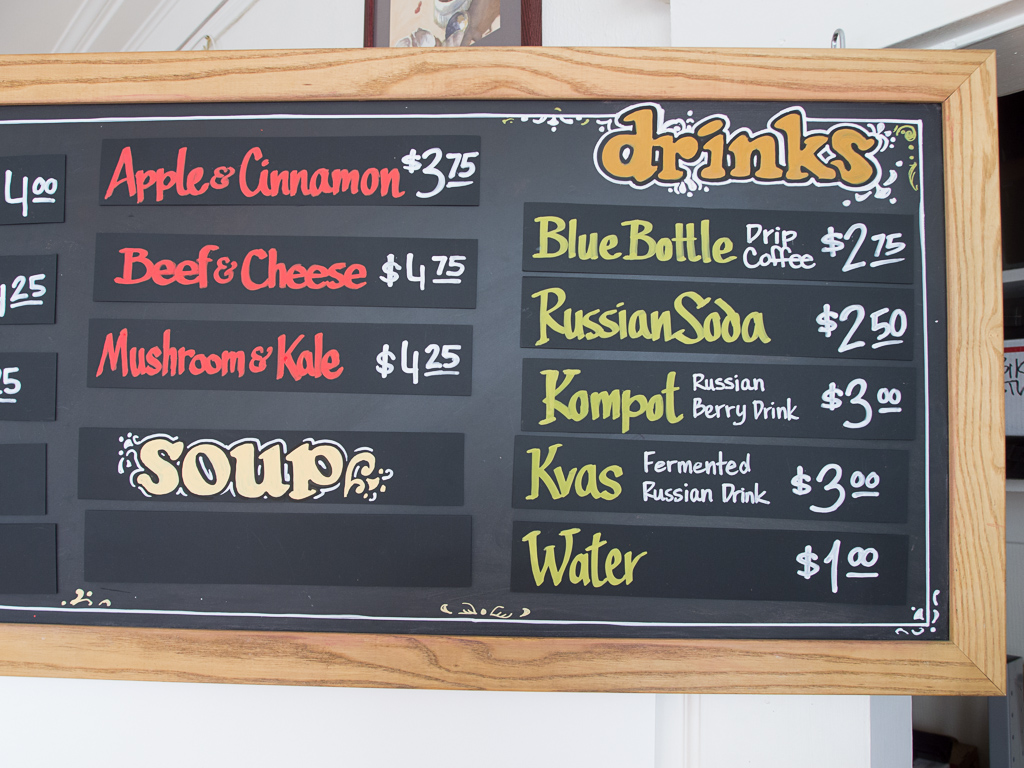 4.00
25
5
Apple & Cinnamon $3.75
Beef & Cheese $4.75
Mushroom & Kale $4.25
soup
drinks
Blue Bottle Drip Coffee $2.75
Russian Soda $2.50
Kompot Russian Berry Drink $3.00
Kvas Fermented Russian Drink $3.00
Water $1.00